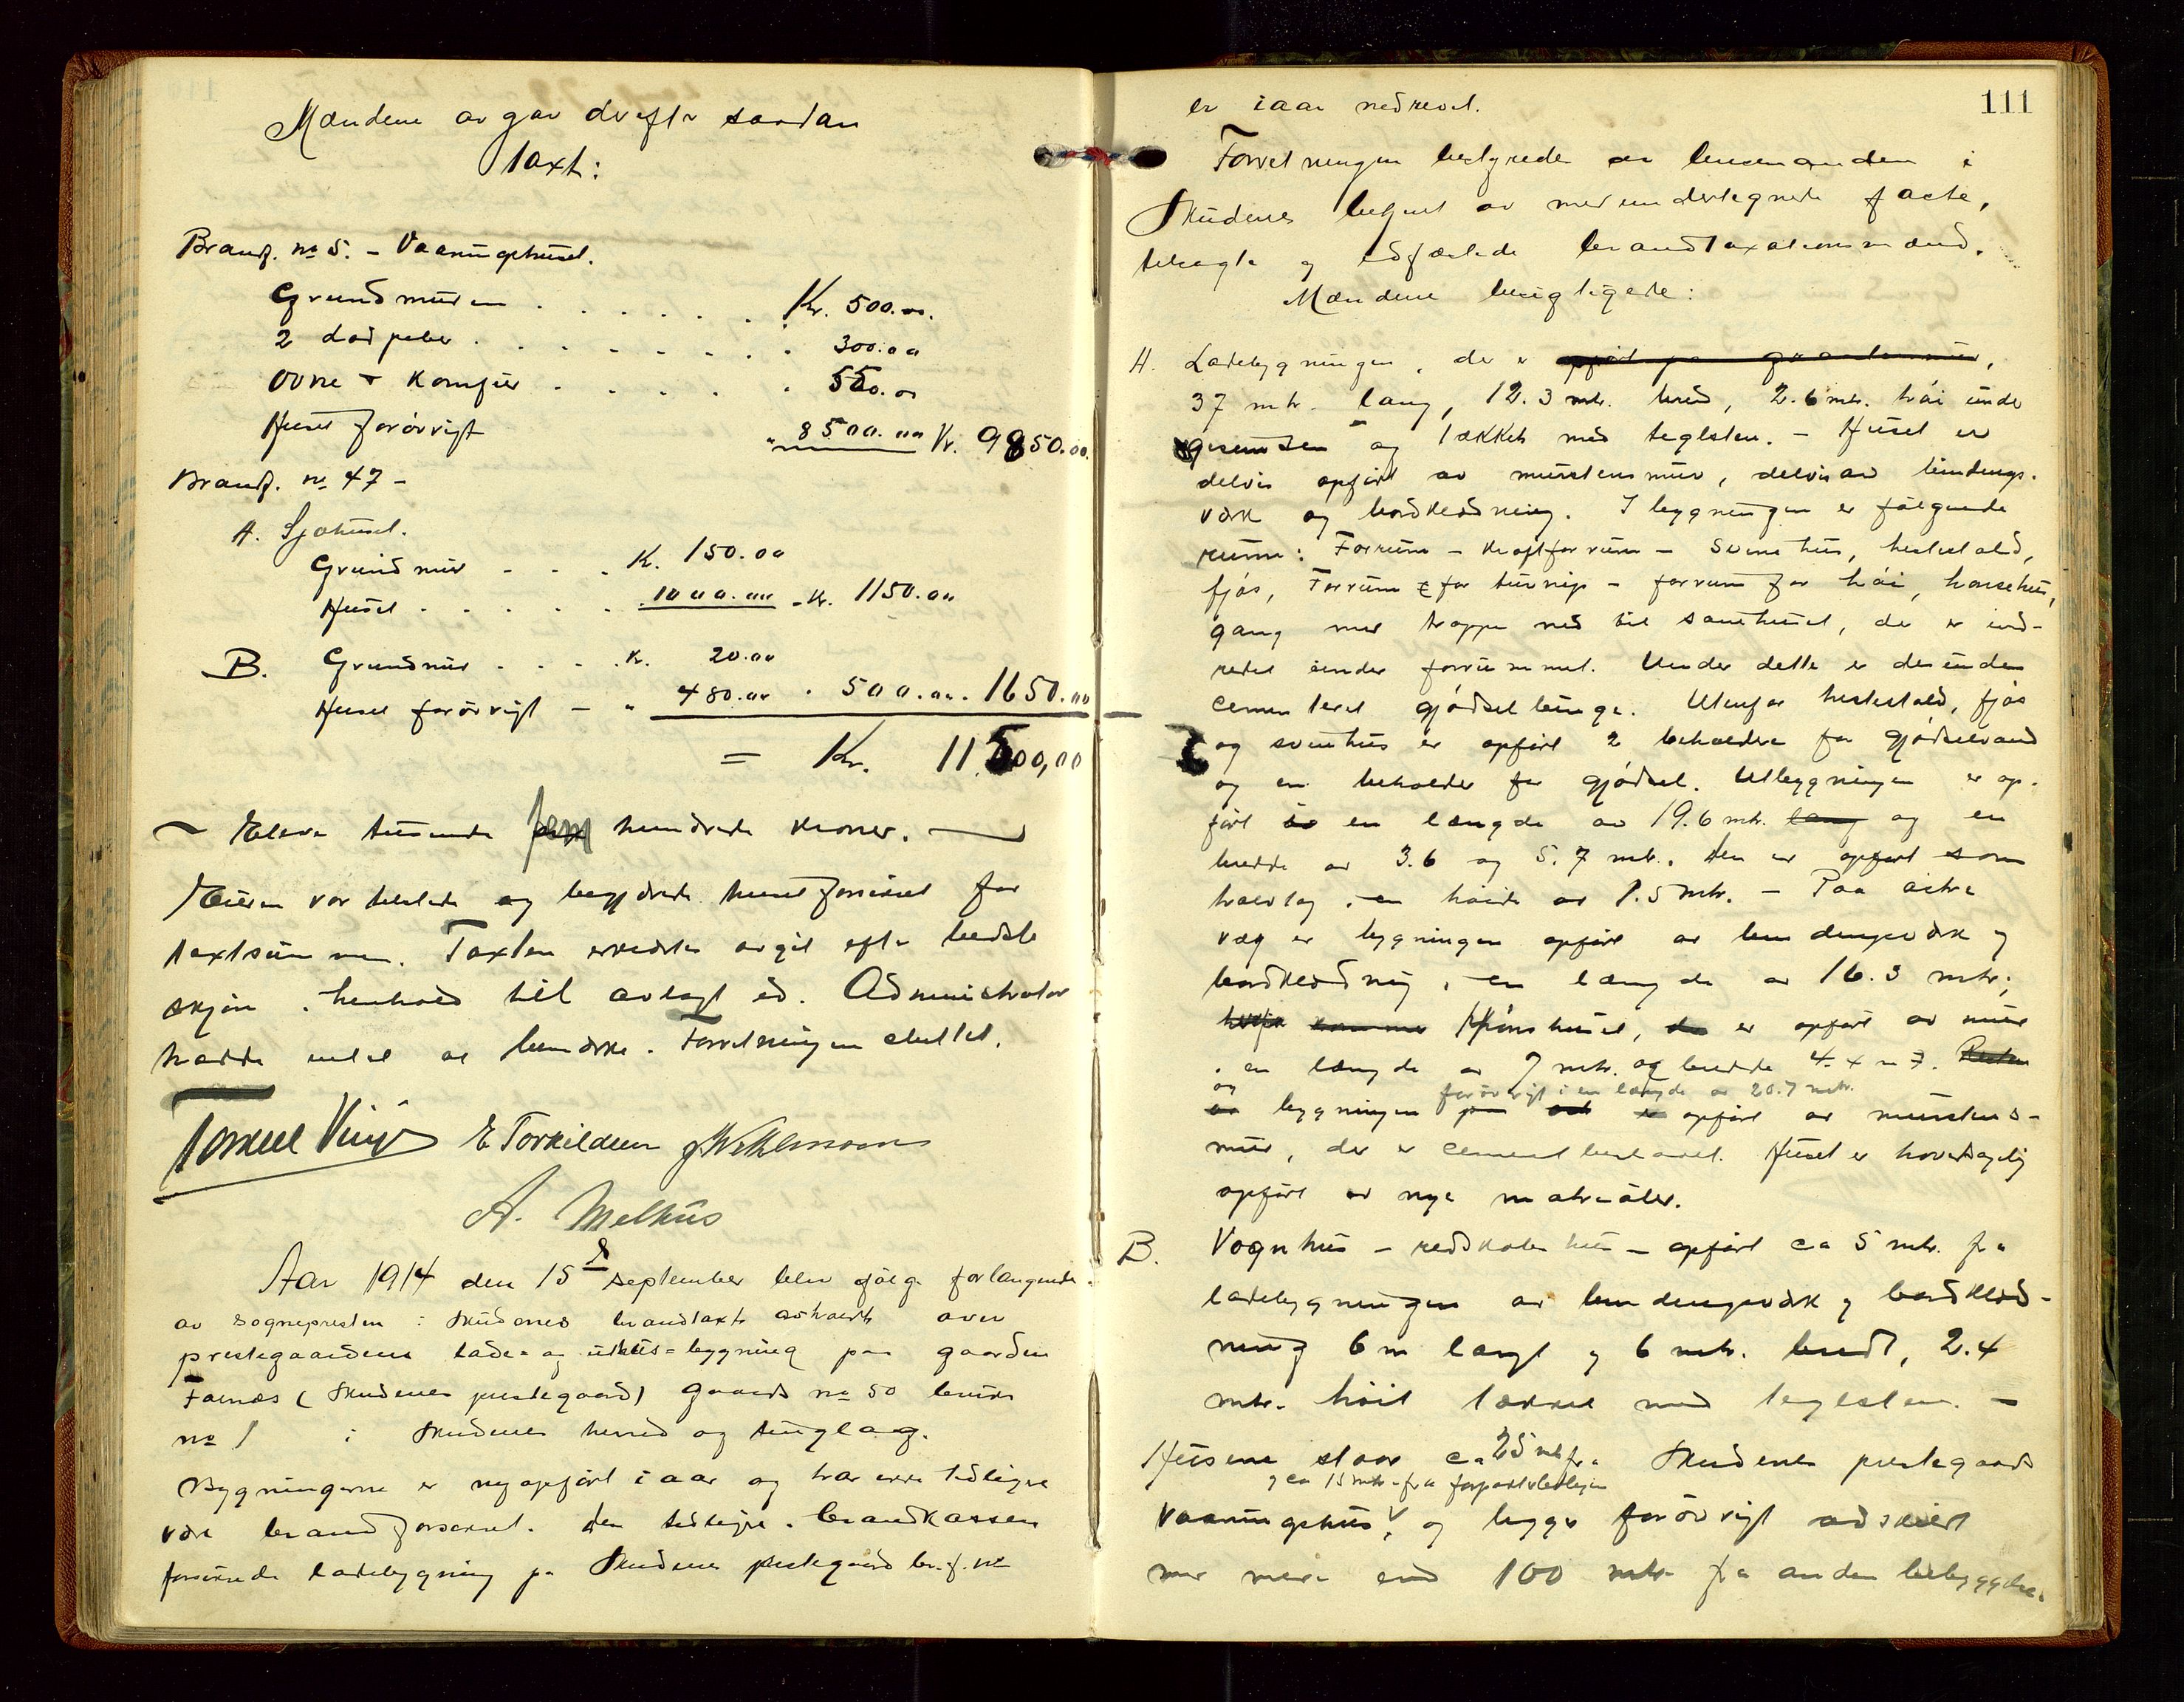 Mændene avgav derefter saadan
taxt:
Brandf. no 5. - Vaaningshuset.
Grundmuren . . . . . . Kr. 500.00.
2 do piper . . . . . . . . 300.00
Ovne + Komfur . . . . . 550.00
Huset forøvrigt " 8500.00 Kr. 9850.00.
Brandf. no 47 -
A. Sjøhuset.
Grundmur - - . K. 150.00
Huset . . . . . . 1000.00 - Kr. 1150.00
B. Grundmur - . . . K. 20.00
Huset forøvrigt - " 480.00 . 500.00. 1650.00
= Kr. 11.500,00
~ Eleve tusende fem hundrede kroner. —
Eieren var tilstede og begjærte huset forsikret for
taxtsummen. Taxten erklærtes avgit efter bedste
skjøn i henhold til avlagt ed. Administrator
hadde intet at bemærke. Forretningen sluttet.
E Torkildsen
A. Melhus
Aar 1914 den 15de september blev ifølge forlangende
av sognepresten i Skudenes brandtaxt avholdt over
prestegaardens lade- og uthus-bygning paa gaarden
Falnæs (Skudenes prestegaard) gaards no 50 bruks
no 1 i Skudenes herred og tinglag.
Bygningerne er nyopført i aar og har ikke tidligere
være brandforsikret. Den tidligere i brandkassen
forsikrede ladebygning paa Skudenes prestegaard br.f. no
111
er iaar nedrevet.
Forretningen bestyredes av lensmanden i
Skudenes betjent av medundertegnede faste,
tilkaldte og edfæstede brandtaxationsmænd.
Mændene besigtigede:
A. Ladebygningen, der er opført paa graastensmur,
37 mtr. lang, 12.3 mtr. bred, 2.6 mtr. høi under
gesimsen og tækket med teglsten. - Huset er
delvis opført av murstensmur, delvis av bindings-
værk og bordklædning. I bygningen er følgende
rum: Forrum - kraftforrum - svinehus, hestestald,
fjøs, Forrum for turnips - forrum for høi, hønsehus,
gang med trappe ned til sauehuset, der er ind-
redet under forrummet. Under dette er desuden
cementeret gjødselbinge. Utenfor hestestald, fjøs
og svinehus er opført 2 beholdere for gjødselvand
og en beholder for gjødsel. Utbygningen er op-
ført i en længde av 19.6 mtr. lang og en
bredde av 3.6 og 5.7 mtr. den er opført som
halvtag i en høide av 1.5 mtr. - Paa østre
væg er bygningen opført av bindingsværk og
bordklædning i en længde av 16.3 mtr;
Hønshuset, der er opført av mur
i en længde av 7 mtr. og bredde 4.4 m
og forøvrigt i en længde av 20.7 mtr.
bygningen opført av murstens-
mur, der er cementberappet. Huset er hovedsagelig
opført av nye materialer.
B. Vognhus - redskabshus - opført ca 5 mtr. fra
ladebygningen av bindingsværk og bordklæd-
ning 6 m langt og 6 mtr. bredt, 2.4
mtr. høit tækket med teglsten. -
Husene staar ca 25 mtr fra Skudenes prestegaards
og ca 15 mtr. fra forpagterboligen
Vaaningshus, og ligger forøvrigt adskilt
med mere end 100 mtr fra anden bebyggelse.